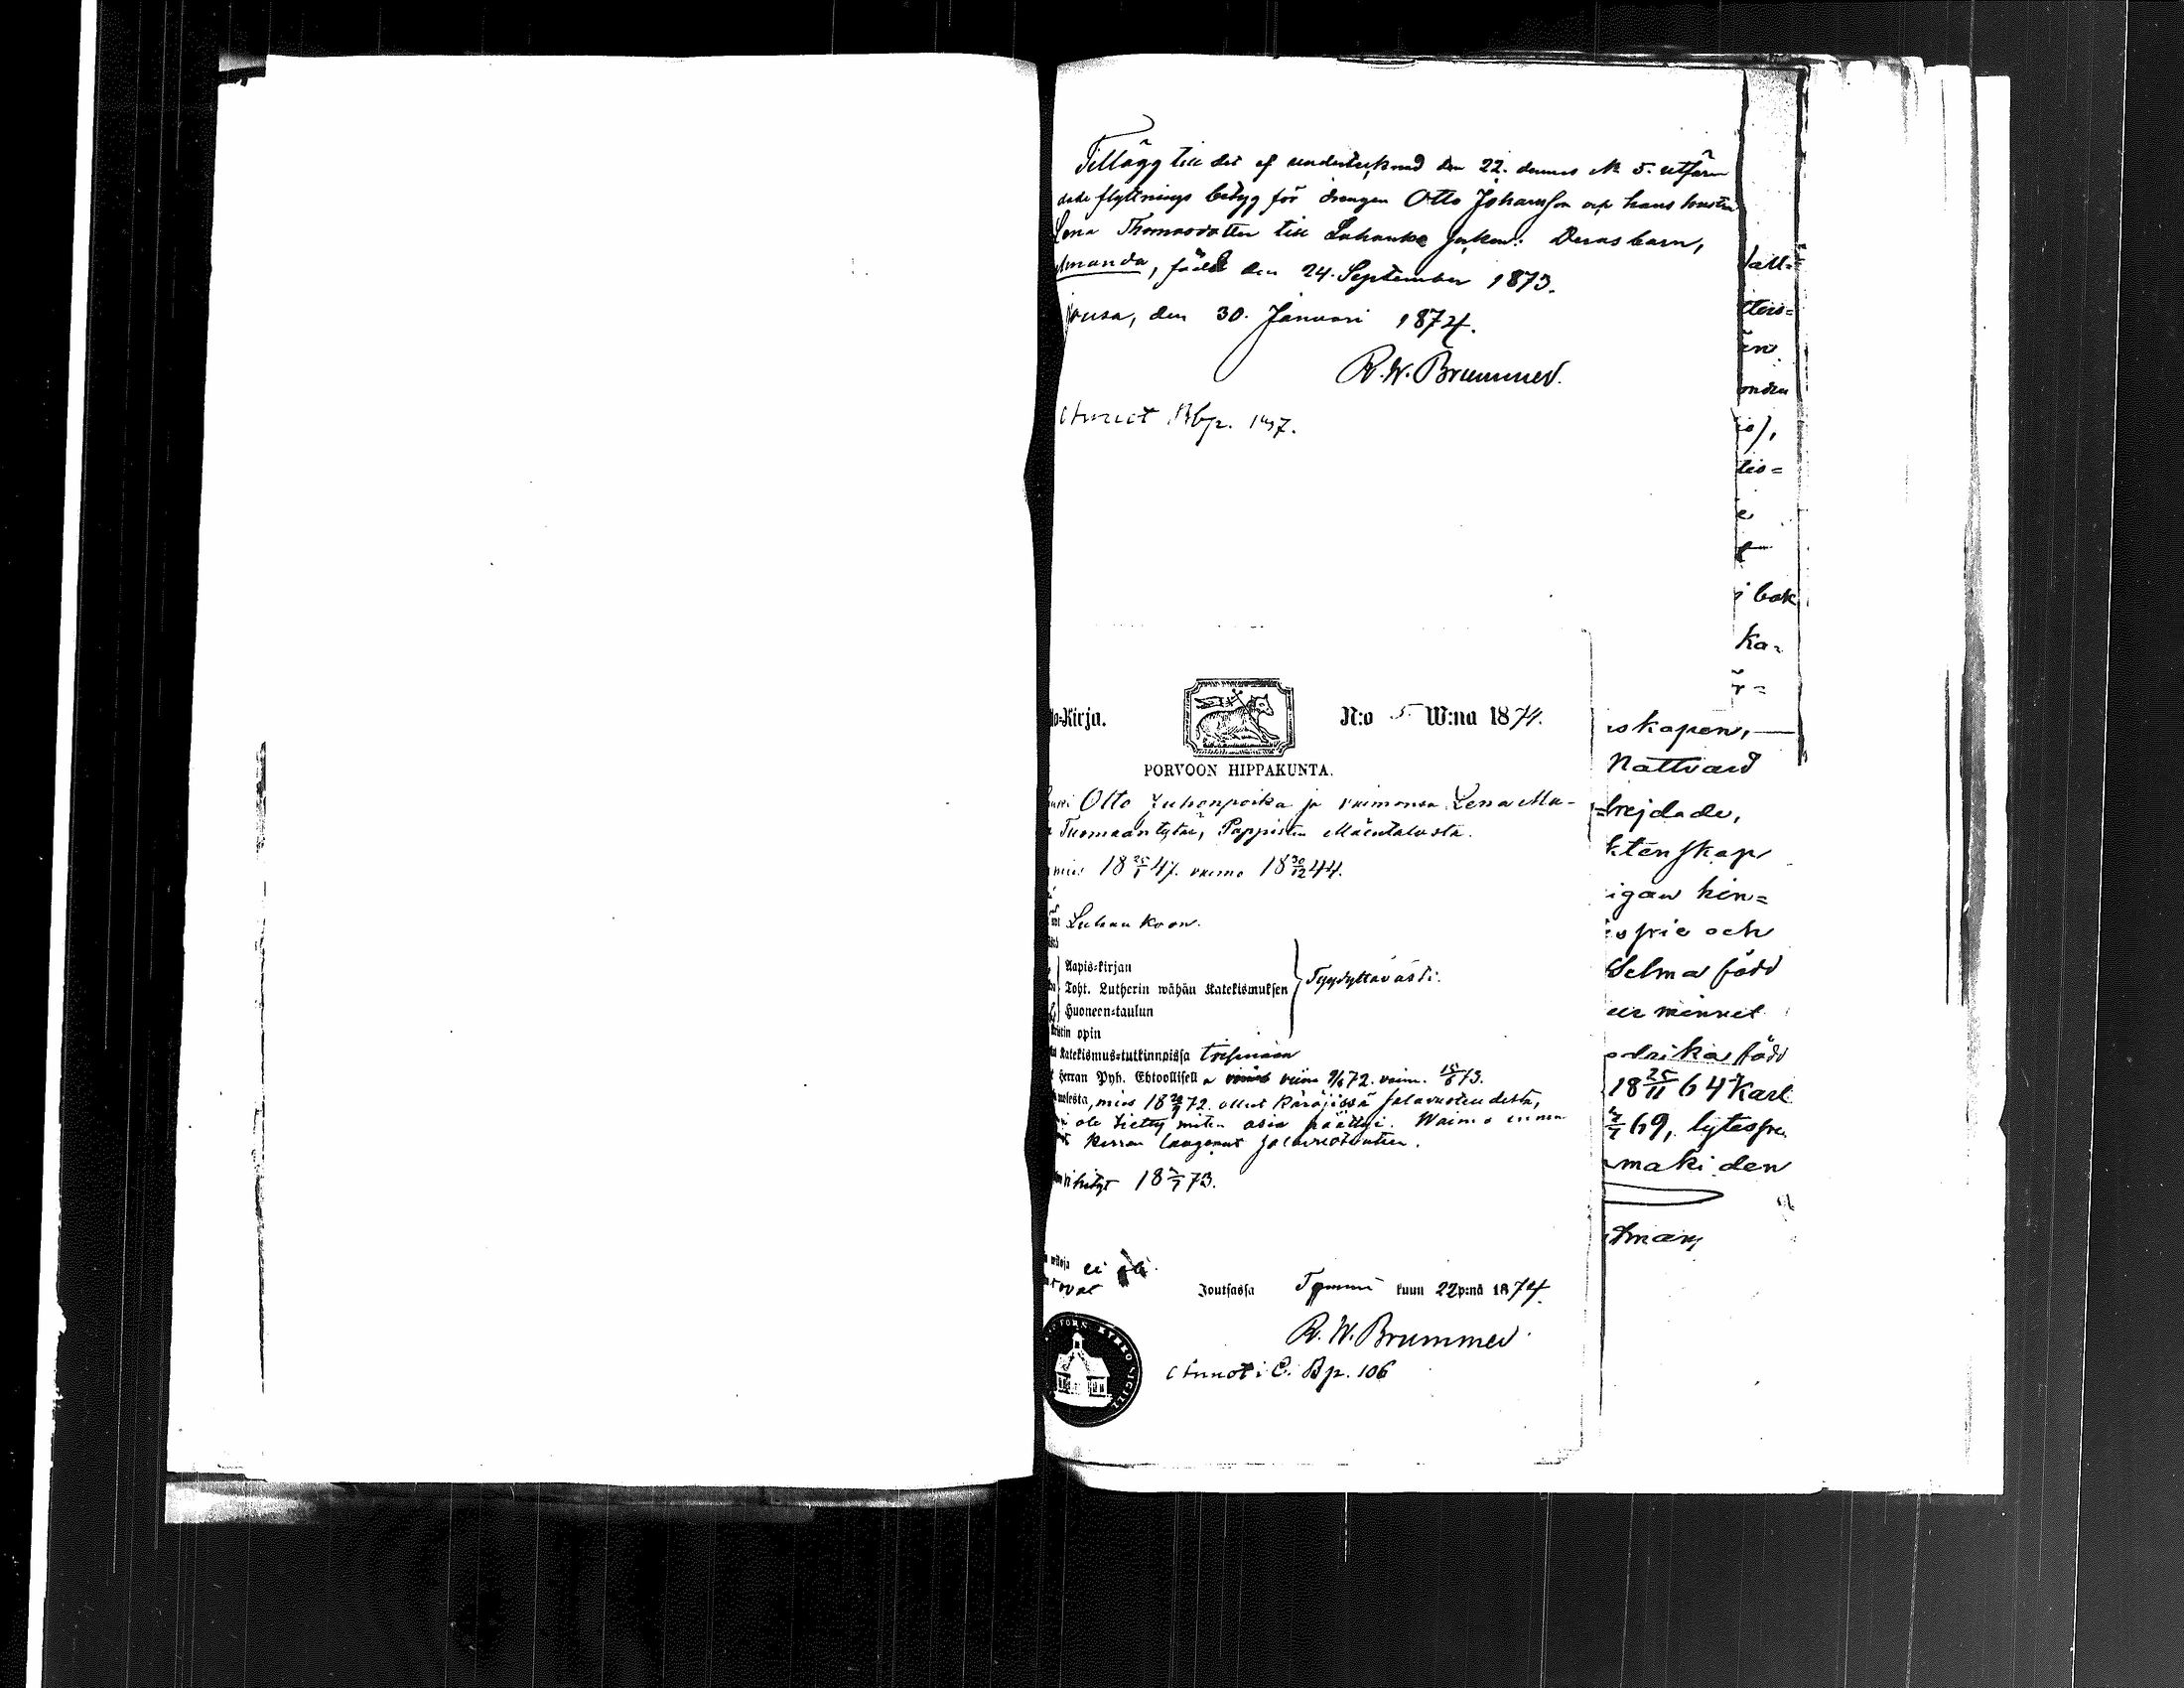 Tillägg till det af undertecknad den 22. dennes N 5. utfär
dade flyttnings betyg för drengen Otto Johansson och hans hustru
Lena Thomasdotter till Luhanka socken: Deras barn,
Amanda, född den 24. September 1873.
Jousa, den 30. Januari 1874.
R. W. Brummer.
Bbp. 147.
to-Kirja.
N:o 5 W:na 1874.
PORVOON HIPPAKUNTA.
Otto Juhonpoika ja vaimonsa Lena Ma-
Tuomaantytär, Pappisten Mäentalosta.
mies 18 25/1 47. vaimo 18 30/12 44.
Luhankoon.
Aapis-kirjan
Toht. Lutherin wähän Katekismuksen
Huoneen-taulun
Tyydyttävästi.
ristin opin
Katekismus-tutkinnoissa
Herran Pyh. Ehtoollisella viim 9/6 72. vaim. 15/6 73.
uolesta, mies 18 72. ollut käräjissä salavuoteudesta,
ei ole tietty miten asia päättyi. Waimo ennen
kerran langennut salavuoteuteen.
vihityt 18 73.
ei ole
Joutsassa Tammi kuun 22 p:nä 1874.
R. W. Brummer
C. Bp. 106
FÖRS. KYRKO SIGILL
tters=
en
onden
is),
tis=
e
i bok
Ka=
r=
skapen,
Nattvard
brejdade,
ktenskap
igan hin=
sfrie och
Selma född
minnet
drika född
18 25/11 64 Karl
69, lytesfri
maki den